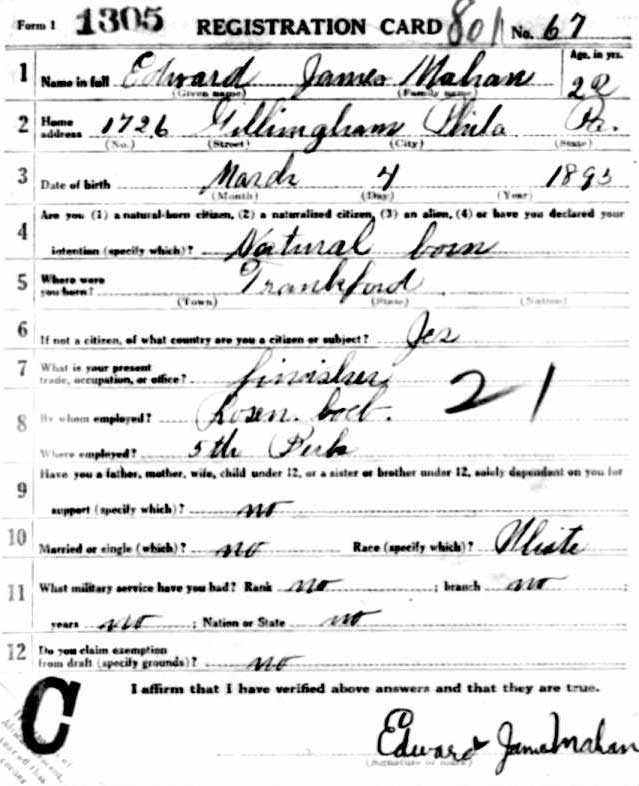 Form 1 1305 REGISTRATION CARD 801 No. 67
1 Name in full Edward James Mahan Age, in yrs. 22
(Given name) (Family name)
2 Home address 1726 Gillingham Phila Pa.
(No.) (Street) (City) (State)
3 Date of birth March 4 1895
(Month) (Day) (Year)
Are you (1) a natural-born citizen, (2) a naturalized citizen, (3) an alien, (4) or have you declared your
4 intention (specify which)? Natural born
5 Where were you born? Frankford
(Town) (State) (Nation)
6 If not a citizen, of what country are you a citizen or subject? Yes
7 What is your present trade, occupation, or office? finisher 21
8 By whom employed? Rosen.
Where employed? 5th
9 Have you a father, mother, wife, child under 12, or a sister or brother under 12, solely dependent on you for
support (specify which)? no
10 Married or single (which)? no Race (specify which)? White
11 What military service have you had? Rank no ; branch no ;
years no ; Nation or State no
12 Do you claim exemption from draft (specify grounds)? no
I affirm that I have verified above answers and that they are true.
C
Edward James Mahan
(Signature or mark)
corner